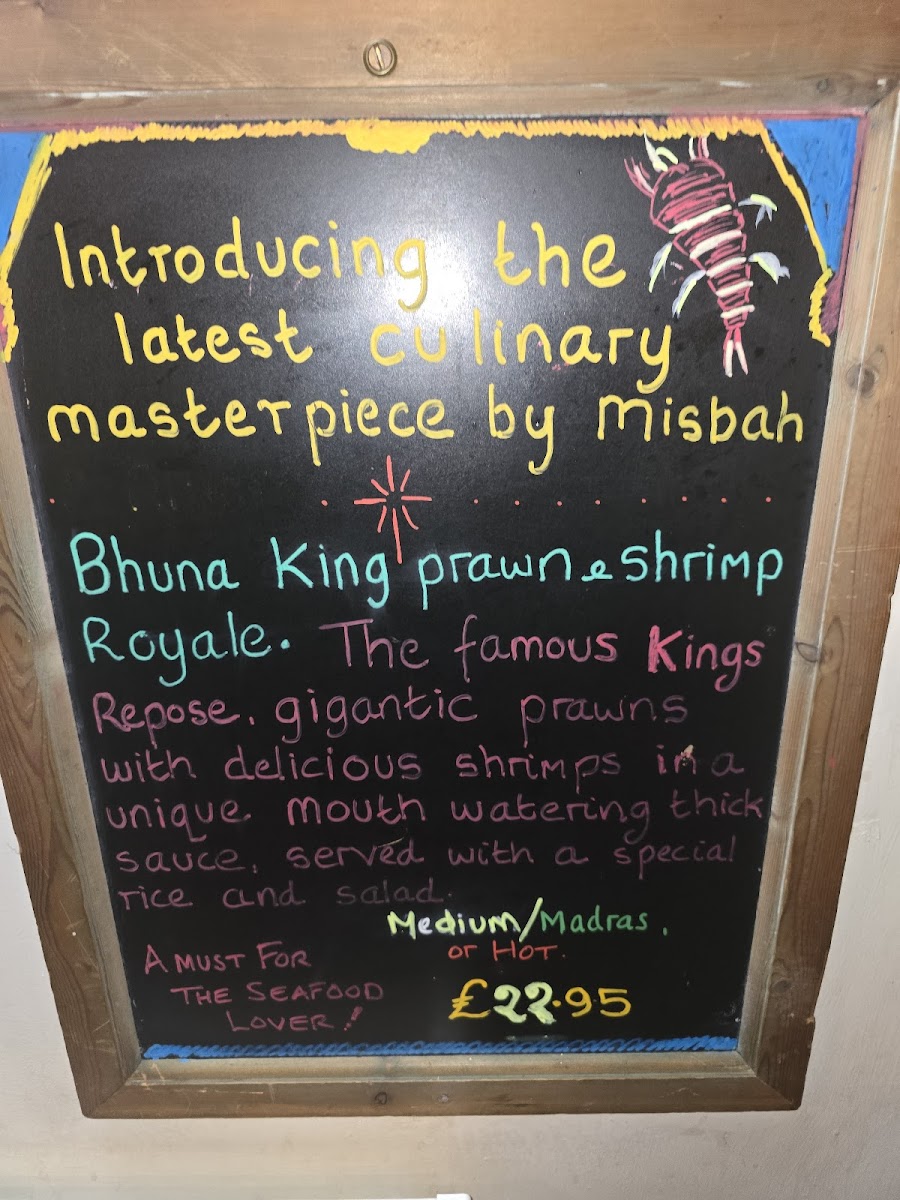 Introducing the
latest culinary
masterpiece by Misbah
Bhuna King prawn & shrimp
Royale. The famous Kings
Repose. gigantic prawns
with delicious shrimps in a
unique mouth watering thick
sauce, served with a special
rice and salad.
Medium/Madras.
or HOT.
A MUST FOR
THE SEAFOOD
LOVER!
£22.95